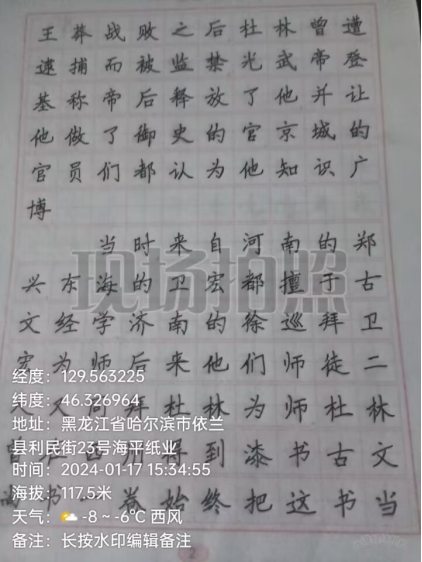 王莽战败之后杜林曾遭
逮捕而被监禁光武帝登
基称帝后释放了他并让
他做了御史的官京城的
官员们都认为他知识广
博
当时来自河南的郑
兴东海的卫宏都擅于古
文经学济南的徐巡拜卫
宏为师后来他们师徒二
人又同拜杜林为师杜林
到漆书古文
书 卷始终把这书当
现场拍照
经度：129.563225
纬度：46.326964
地址：黑龙江省哈尔滨市依兰
县利民街23号海平纸业
时间：2024-01-17 15:34:55
海拔：117.5米
天气：-8 ~ -6℃ 西风
备注：长按水印编辑备注
2